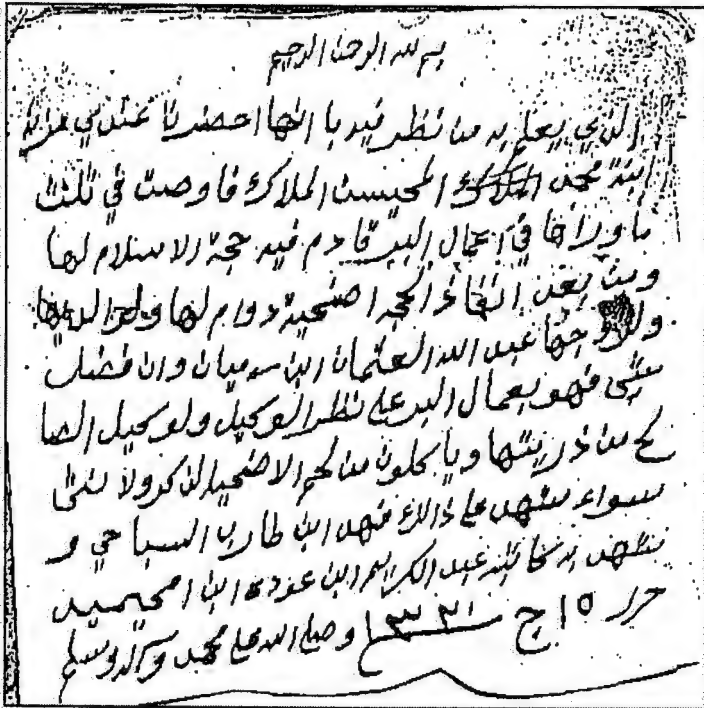 بسم الله الرحمن الرحيم
الذي يعلم به من نظر فيه با انها احضرتا عندي مزنه
ابنة محمد المحيسن الملاك فاوصت في ثلث
ما وراها في اعمال البر قادم فيه حجة الاسلام لها
ومن بعد انفاذ الحجه اضحية دوام لها ولوالديها
ولزوجها عبد الله العثمان ابن سميان وان فضل
شي فهو بعمال البر على نظر الوكيل ولوكيل الصا
لح من ذريتها وياكلون من لحم الاضحيه لذكر ولانثى
سواء شهد على ذالك فهد ابن طارب السباحي و
شهد به كاتبه عبد الكريم ابن عوده ابن امحيميد
حرر ١٥ ج ١٣٢١ وصلى الله على محمد وآله وسلم